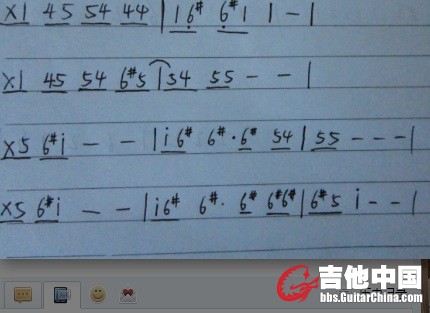 x1 45 54 44 | 1 6# 6# 1 1 - |
x1 45 54 6#5 | 54 55 - - |
x5 6#i - - | i6# 6#· 6# 54 | 55 - - - |
x5 6#i - - | i6# 6#· 6# 6#6# | 6#5 i - - |
吉他中国
bbs.GuitarChina.com